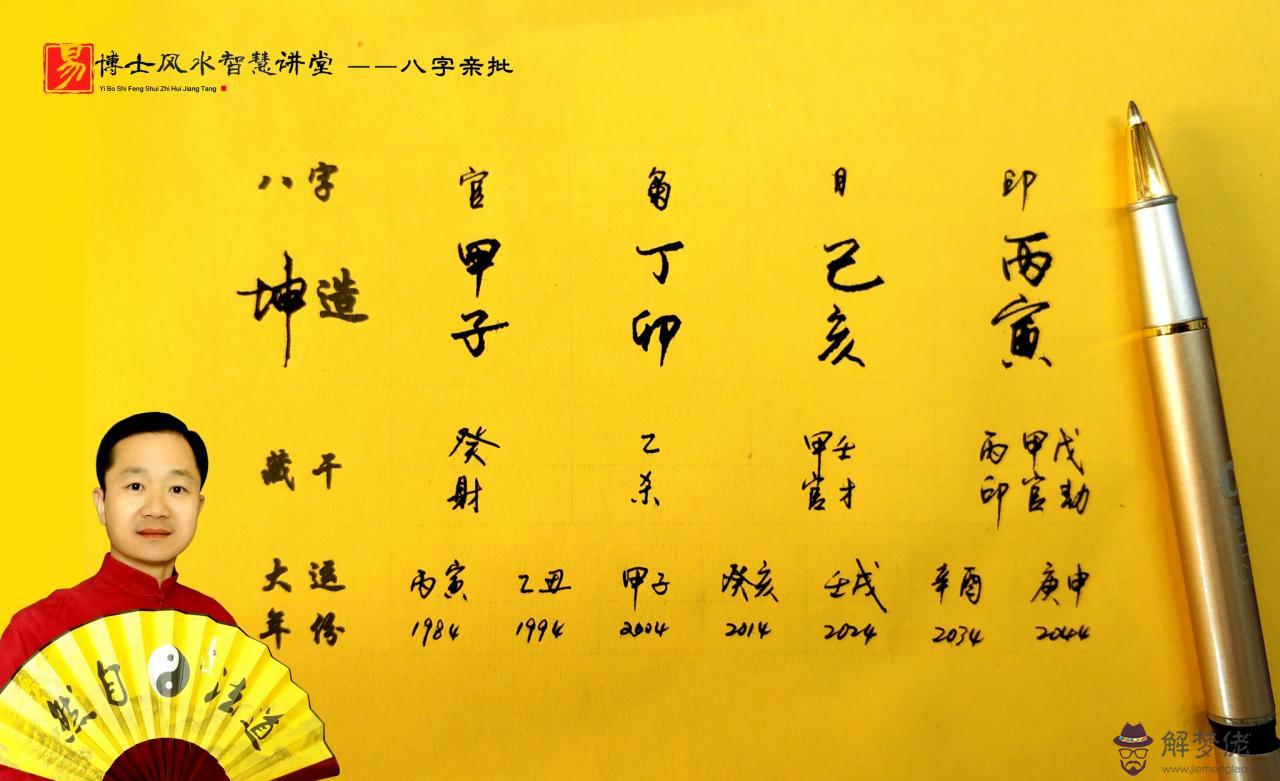 易 博士风水智慧讲堂 ——八字亲批
Yi Bo Shi Feng Shui Zhi Hui Jiang Tang
八字 官 枭 日 印
坤造 甲 丁 己 丙
子 卯 亥 寅
藏干 癸 乙 甲壬 丙甲戊
財 杀 官才 印官劫
大运 丙寅 乙丑 甲子 癸亥 壬戌 辛酉 庚申
年份 1984 1994 2004 2014 2024 2034 2044
道法自然
解梦佬